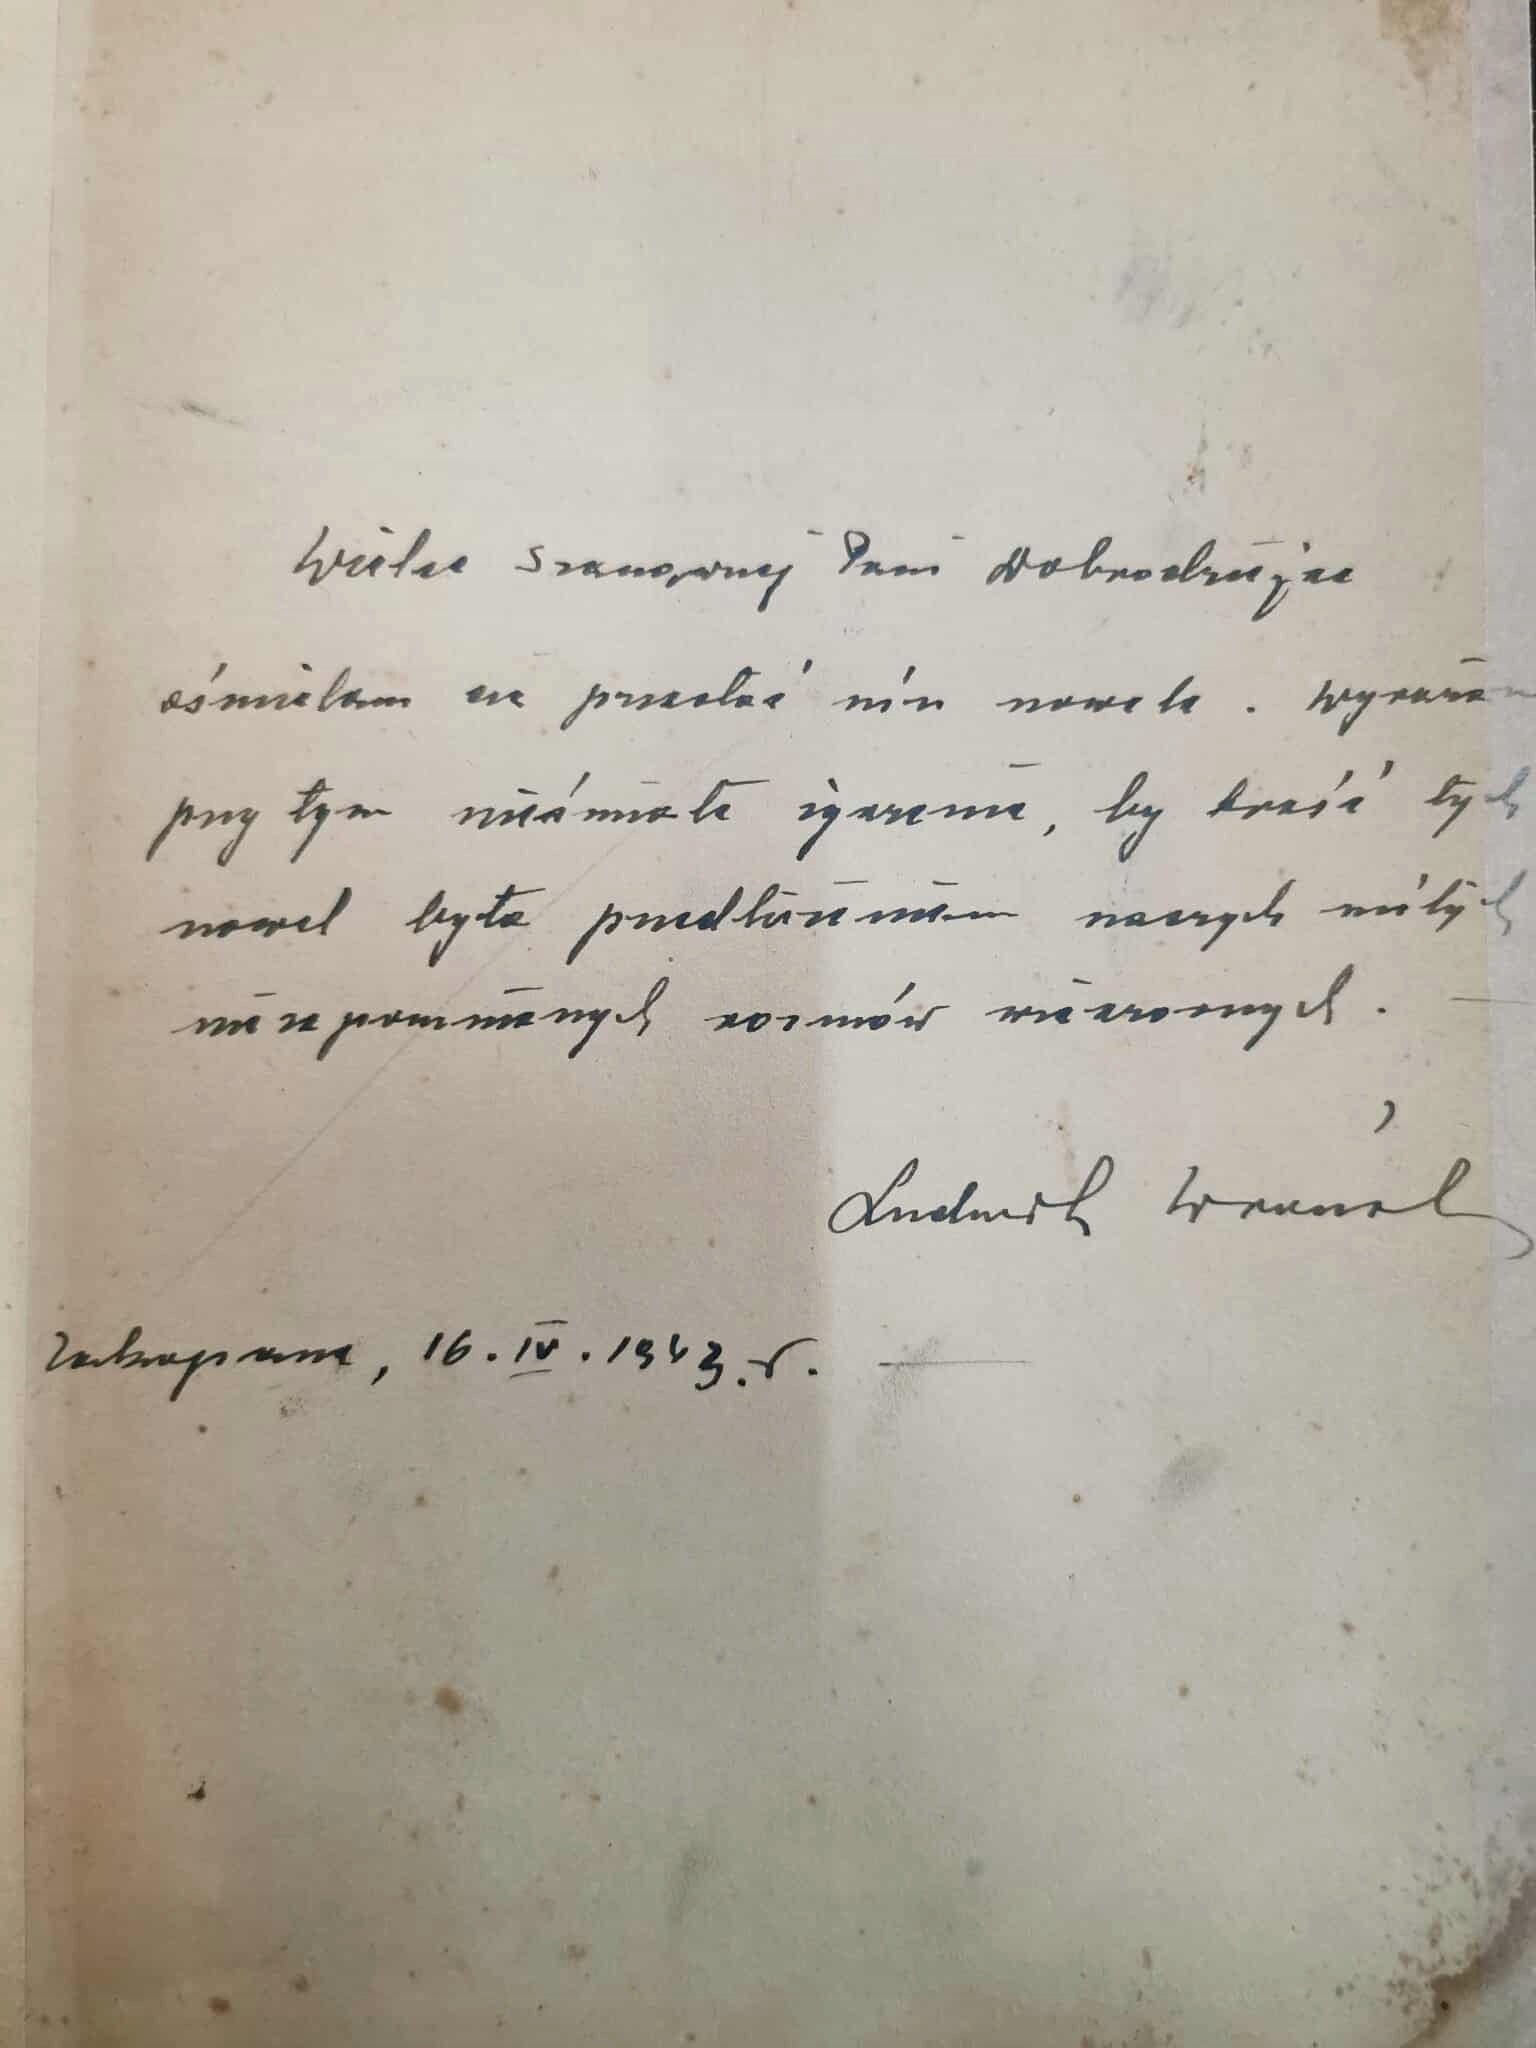 Wielce Szanownej Pani Dobrodziejce
ośmielam się przesłać nin nowele. Wyrażam
przy tym nieśmiałe życzenie, by treść tych
nowel była przedłużeniem naszych miłych
niezapomnianych rozmów wieczornych.
Ludwik
Zakopane, 16.IV.1943.r.